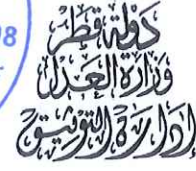 دولة قطر
وزارة العدل
إدارة التوثيق
98